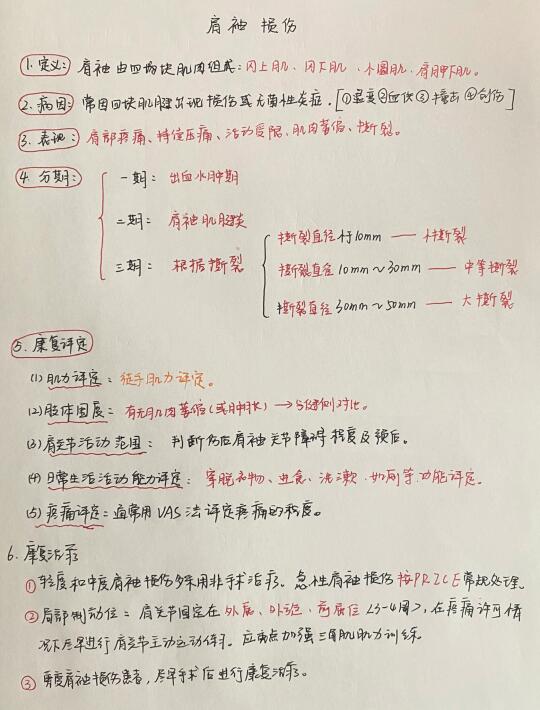 肩袖损伤
1.定义: 肩袖由四块肌肉组成: 冈上肌、冈下肌、小圆肌、肩胛下肌。
2.病因: 常因四块肌腱出现损伤或无菌性炎症.[①退变②血供③撞击④创伤
3.表现: 肩部疼痛、特定压痛、活动受限、肌肉萎缩、撕裂。
4.分期:
一期: 出血水肿期
二期: 肩袖肌腱炎
三期: 根据撕裂
撕裂直径<10mm —— 小撕裂
撕裂直径10mm~30mm —— 中等撕裂
撕裂直径30mm~50mm —— 大撕裂
5.康复评定
(1)肌力评定: 徒手肌力评定。
(2)肢体围度: 有无肌肉萎缩(或肿胀) →与健侧对比。
(3)肩关节活动范围: 判断伤后肩袖关节障碍程度及预后。
(4)日常生活活动能力评定: 穿脱衣物、进食、洗漱、如厕等功能评定.
(5)疼痛评定: 通常用VAS法评定疼痛的程度。
6.康复治疗
①轻度和中度肩袖损伤多采用非手术治疗。急性肩袖损伤按PRICE常规处理.
②局部制动位: 肩关节固定在外展、外旋、前屈位<3-4周>,在疼痛许可情
况下尽早进行肩关节主动运动练习。应重点加强三角肌肌力训练.
③重度肩袖损伤患者,尽早手术后进行康复治疗。